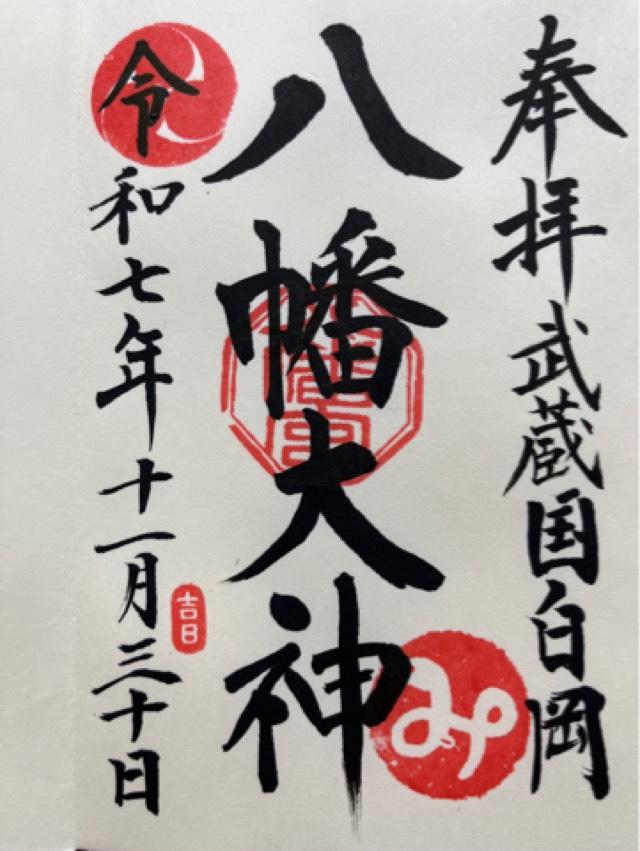 奉拝 武蔵国白岡
八幡大神
令和七年十一月三十日
吉日